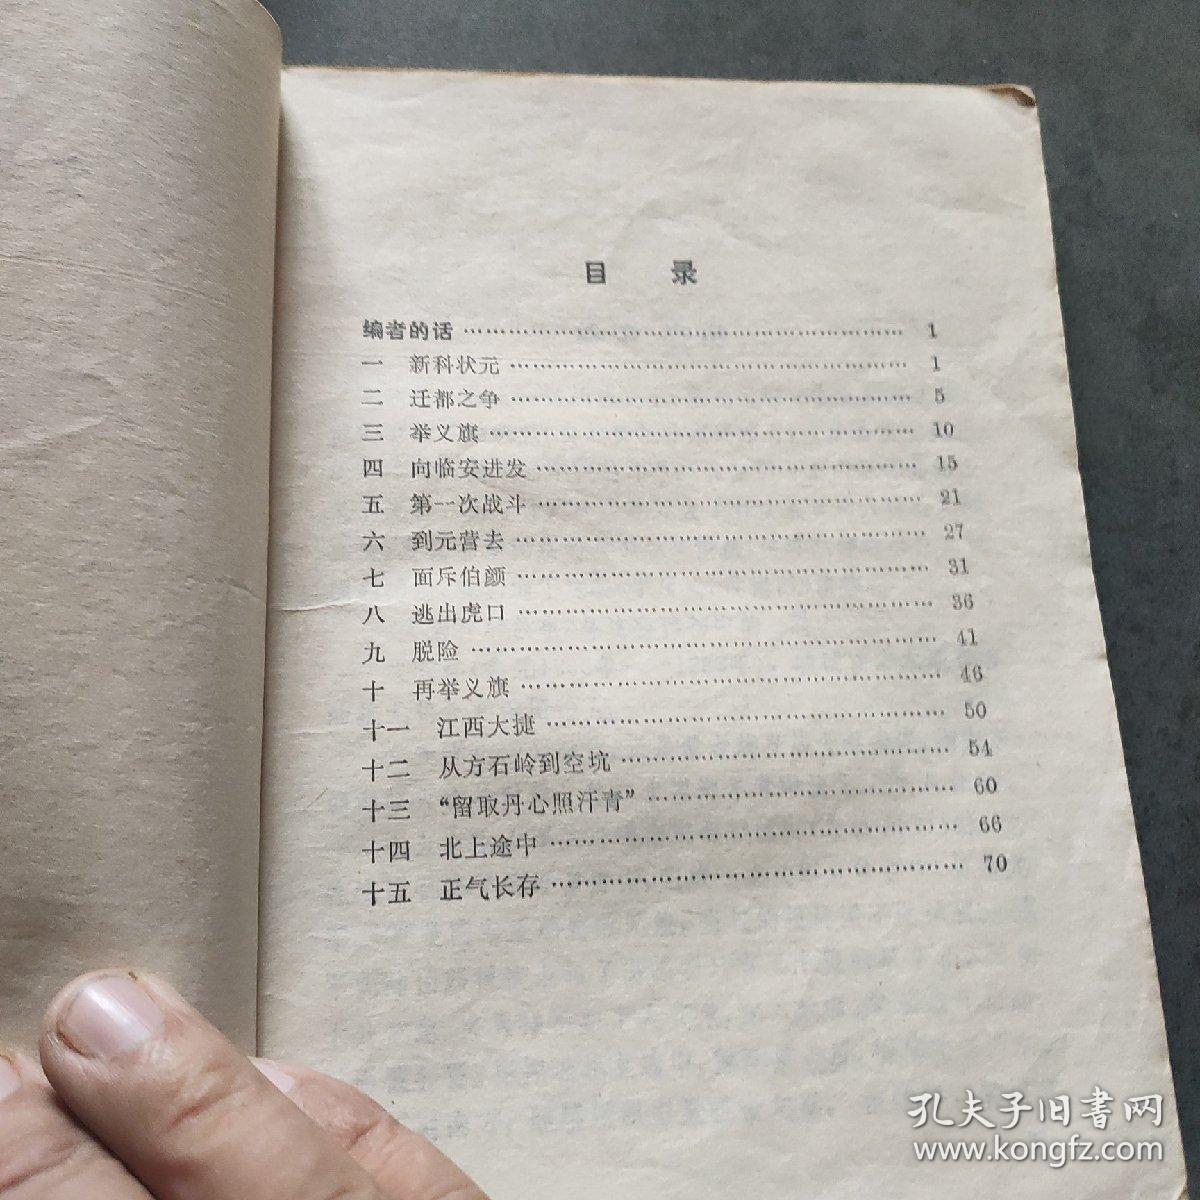 目 录
编者的话 …… 1
一 新科状元 …… 1
二 迁都之争 …… 5
三 举义旗 …… 10
四 向临安进发 …… 15
五 第一次战斗 …… 21
六 到元营去 …… 27
七 面斥伯颜 …… 31
八 逃出虎口 …… 36
九 脱险 …… 41
十 再举义旗 …… 46
十一 江西大捷 …… 50
十二 从方石岭到空坑 …… 54
十三 “留取丹心照汗青” …… 60
十四 北上途中 …… 66
十五 正气长存 …… 70
孔夫子旧书网
www.kongfz.com